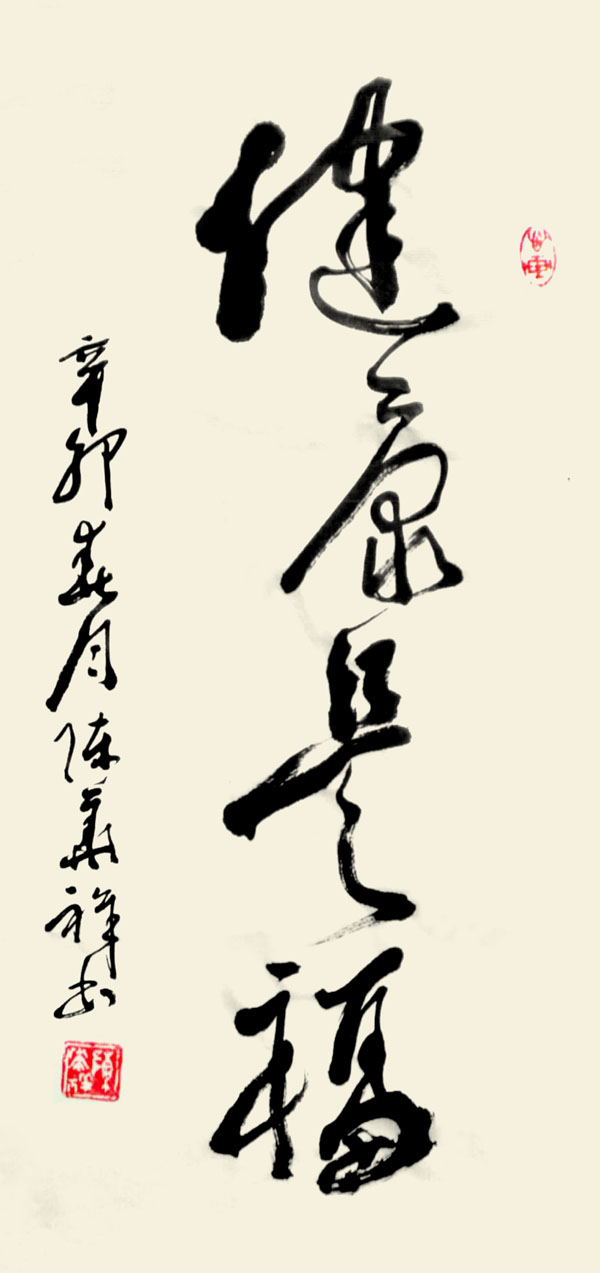 健康是福
辛卯春月陈华祥书